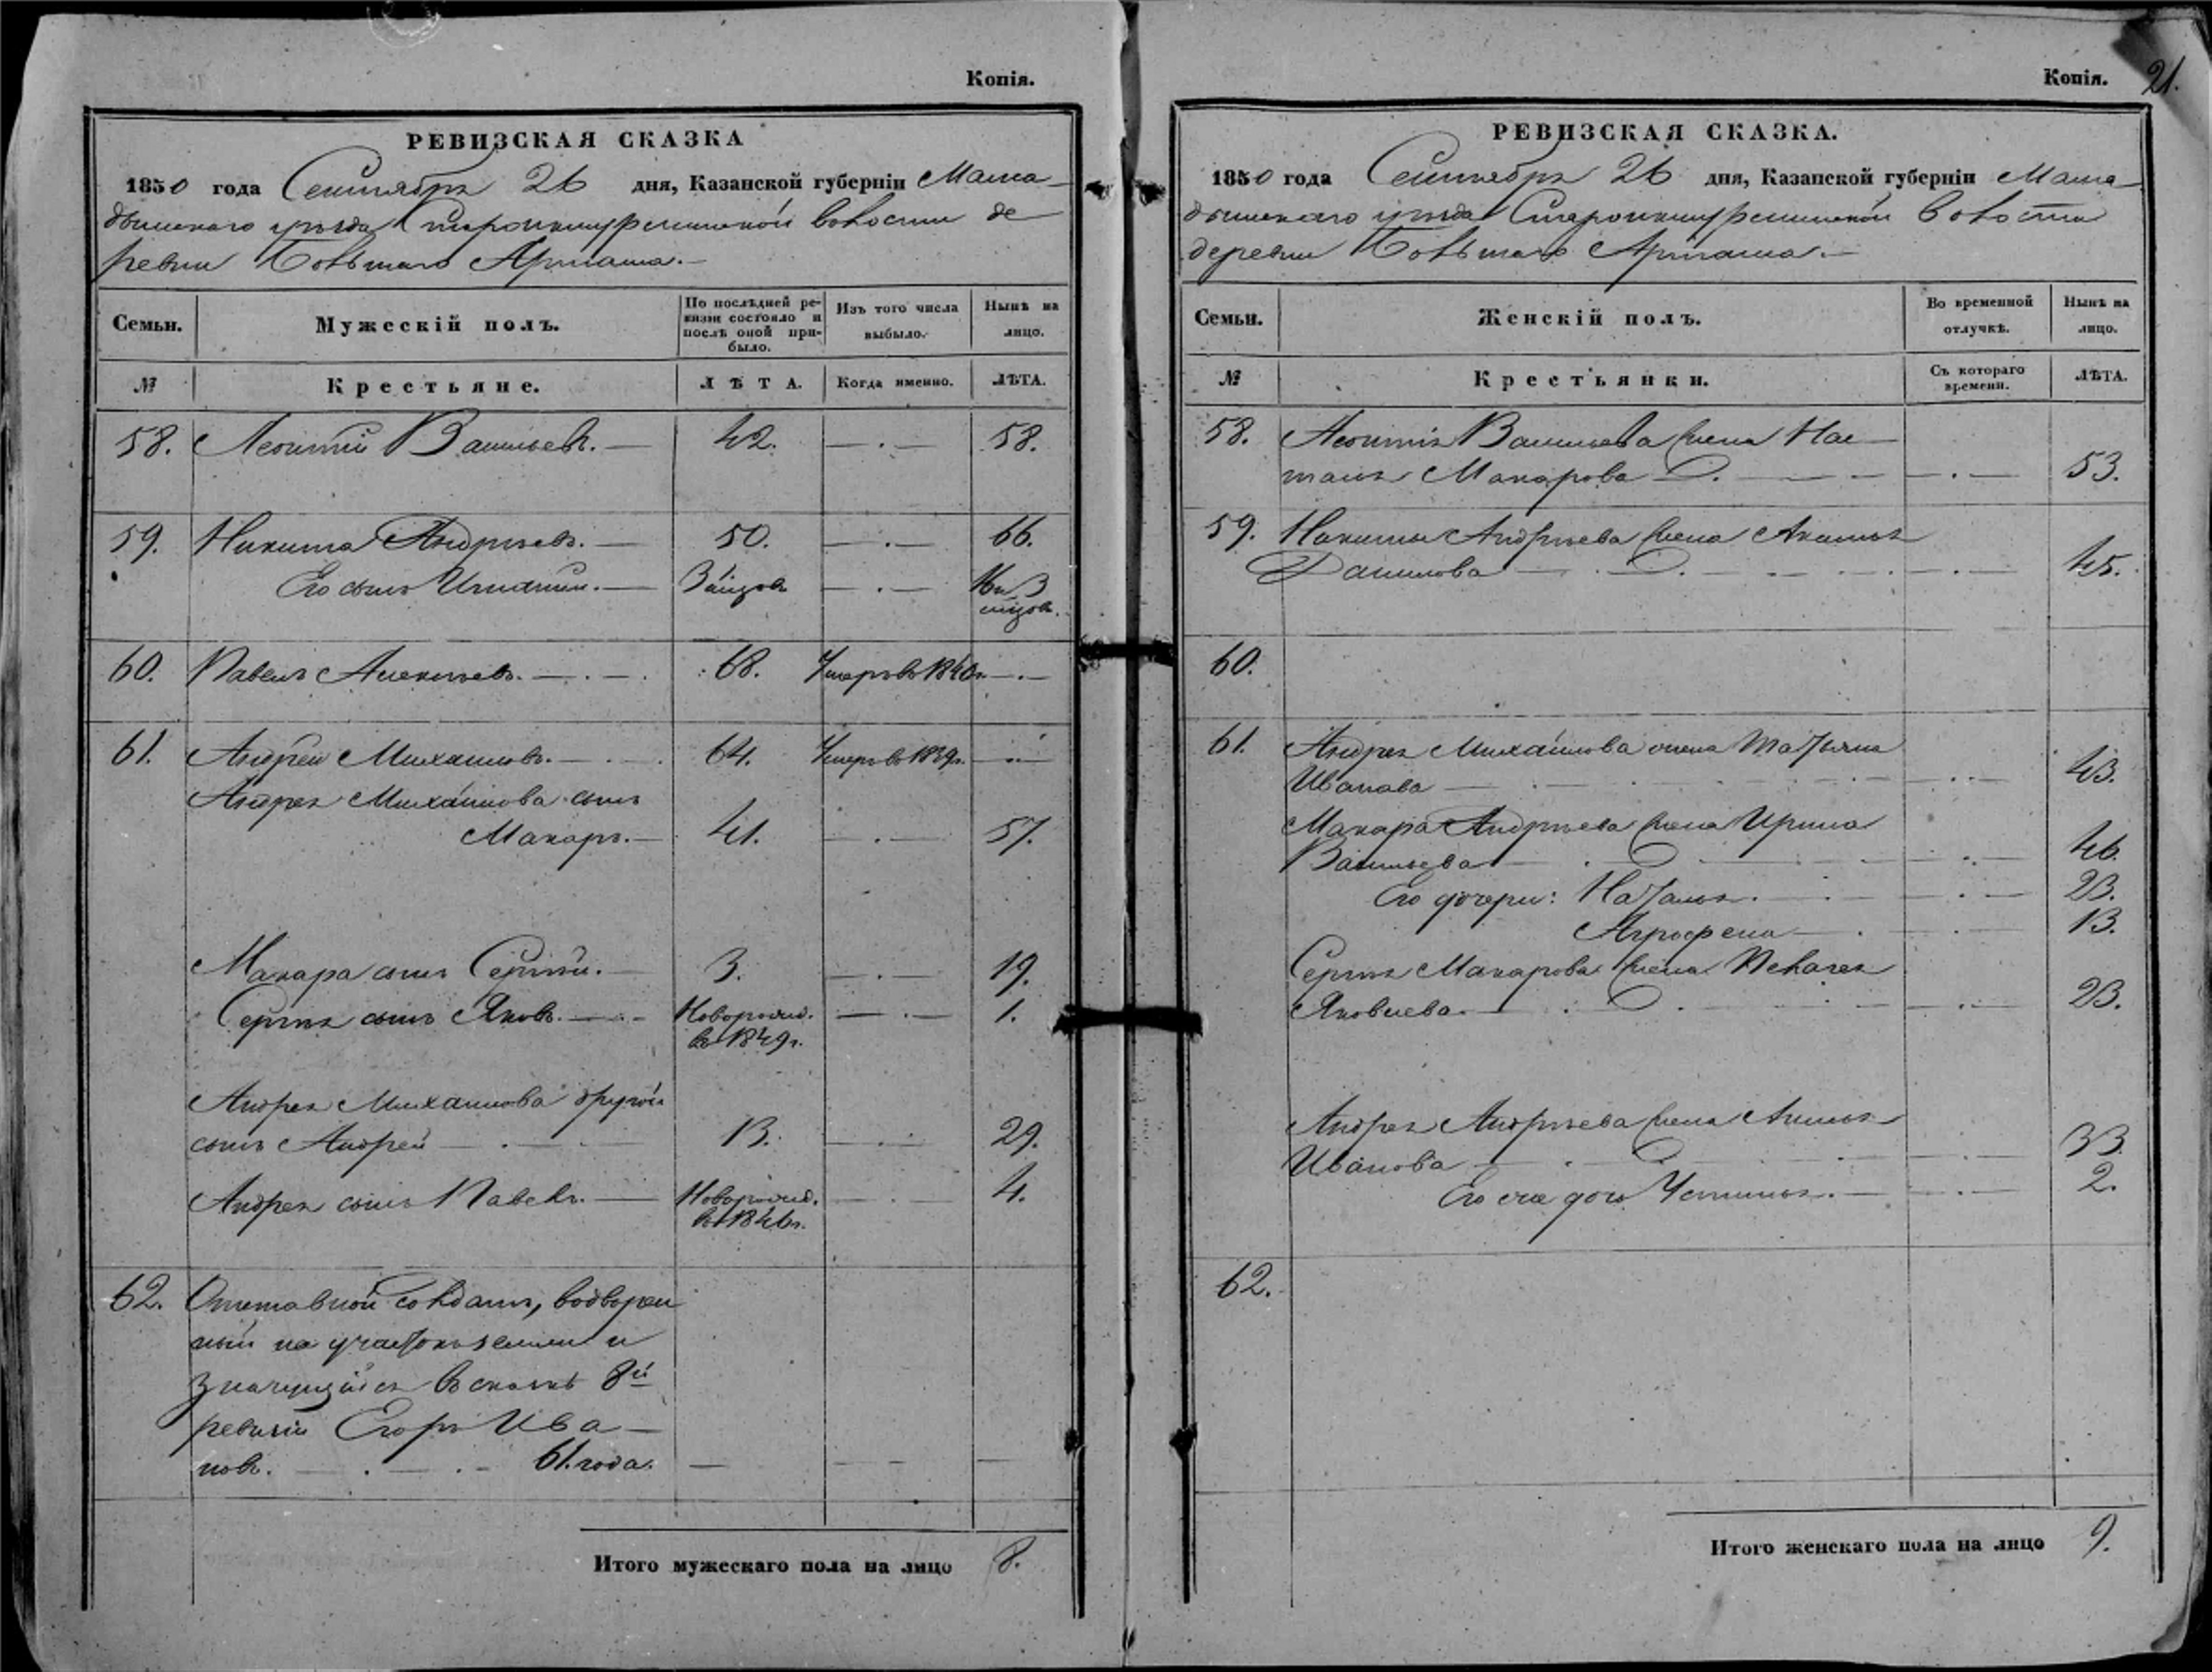 Копія.
РЕВИЗСКАЯ СКАЗКА
1850 года Сентября 26 дня, Казанской губерніи Мама-
дышскаго уѣзда Старокишурминской волости де
ревни Большаго Арташа.—
Семьи. Мужескій полъ. По послѣдней ре-визіи состояло и послѣ оной при-было. Изъ того числа выбыло. Нынѣ на лицо.
№ Крестьяне. ЛѢТА. Когда именно. ЛѢТА.
58. Леонтій Васильевъ.— 42. —·— 58.
59. Никита Андрѣевъ.— 50. —·— 66.
Его сынъ Игнатій.— 3 мѣцов —·— 16 и 3
мѣцов.
60. Павелъ Алексѣевъ.—·—· 68. Умеръ въ 1840 г. —·—
61. Андрей Михайловъ.—·—· 64. Умеръ въ 1839 г. —·—
Андрея Михайлова сынъ
Макаръ.— 41. —·— 57.
Макара сынъ Сергѣй.— 3. —·— 19.
Сергѣя сынъ Яковъ.—·— Новорожд. —·— 1.
въ 1849 г.
Андрея Михайлова другой
сынъ Андрей —·—— 13. —·— 29.
Андрея сынъ Павелъ.— Новорожд. —·— 4.
въ 1846 г.
62. Отставной солдатъ, водворен
ный на участокъ земли и
значущійся въ сказкѣ 8й
ревизіи Егоръ Ива—
новъ. —·—·— 61. года. — —— —
Итого мужескаго пола на лицо 8.
Копія. 21.
РЕВИЗСКАЯ СКАЗКА.
1850 года Сентября 26 дня, Казанской губерніи Мама-
дышскаго уѣзда Старокишурминской волости
деревни Большаго Арташа.—
Семьи. Женскій полъ. Во временной отлучкѣ. Нынѣ на лицо.
№ Крестьянки. Съ котораго времени. ЛѢТА.
58. Леонтія Васильева жена Нас—
тасья Макарова —·— 53.
59. Никиты Андрѣева жена Акилина
Данилова —·— 45.
60.
61. Андрея Михайлова жена Татьяна
Иванова —·— 43.
Макара Андрѣева жена Ирина
Васильева —·— 46.
Его дочери: Наталья. —·— 23.
Аграфена —·— 13.
Сергѣя Макарова жена Пелагея
Яковлева. —·— 23.
Андрея Андрѣева жена Анисья
Иванова —·— 33.
Его же дочь Устинья.— —·— 2.
62.
Итого женскаго пола на лицо 9.